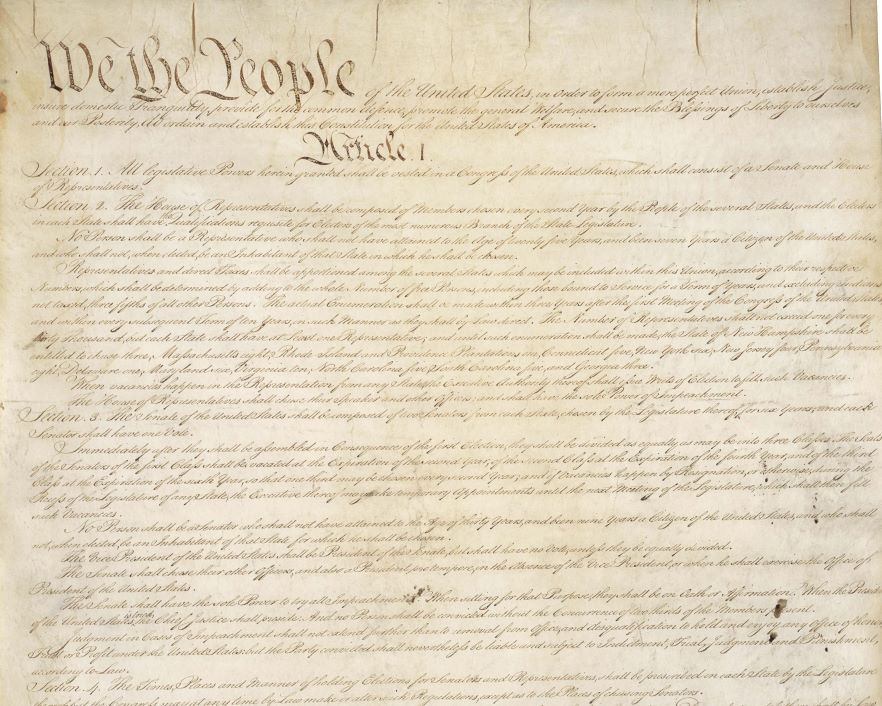 We the People of the United States, in Order to form a more perfect Union, establish Justice,
insure domestic Tranquility, provide for the common defence, promote the general Welfare, and secure the Blessings of Liberty to ourselves
and our Posterity, do ordain and establish this Constitution for the United States of America.
Article. I.
Section. 1. All legislative Powers herein granted shall be vested in a Congress of the United States, which shall consist of a Senate and House
of Representatives.
Section. 2. The House of Representatives shall be composed of Members chosen every second Year by the People of the several States, and the Electors
in each State shall have the Qualifications requisite for Electors of the most numerous Branch of the State Legislature.
No Person shall be a Representative who shall not have attained to the Age of twenty five Years, and been seven Years a Citizen of the United States,
and who shall not, when elected, be an Inhabitant of that State in which he shall be chosen.
Representatives and direct Taxes shall be apportioned among the several States which may be included within this Union, according to their respective
Numbers, which shall be determined by adding to the whole Number of free Persons, including those bound to Service for a Term of Years, and excluding Indians
not taxed, three fifths of all other Persons. The actual Enumeration shall be made within three Years after the first Meeting of the Congress of the United States,
and within every subsequent Term of ten Years, in such Manner as they shall by Law direct. The Number of Representatives shall not exceed one for every
thirty Thousand, but each State shall have at Least one Representative; and until such enumeration shall be made, the State of New Hampshire shall be
entitled to chuse three, Massachusetts eight, Rhode Island and Providence Plantations one, Connecticut five, New York six, New Jersey four, Pennsylvania
eight, Delaware one, Maryland six, Virginia ten, North Carolina five, South Carolina five, and Georgia three.
When vacancies happen in the Representation from any State, the Executive Authority thereof shall issue Writs of Election to fill such Vacancies.
The House of Representatives shall chuse their Speaker and other Officers; and shall have the sole Power of Impeachment.
Section. 3. The Senate of the United States shall be composed of two Senators from each State, chosen by the Legislature thereof, for six Years; and each
Senator shall have one Vote.
Immediately after they shall be assembled in Consequence of the first Election, they shall be divided as equally as may be into three Classes. The Seats
of the Senators of the first Class shall be vacated at the Expiration of the second Year, of the second Class at the Expiration of the fourth Year, and of the third
Class at the Expiration of the sixth Year, so that one third may be chosen every second Year; and if Vacancies happen by Resignation, or otherwise, during the
Recess of the Legislature of any State, the Executive thereof may make temporary Appointments until the next Meeting of the Legislature, which shall then fill
such Vacancies.
No Person shall be a Senator who shall not have attained to the Age of thirty Years, and been nine Years a Citizen of the United States, and who shall
not, when elected, be an Inhabitant of that State for which he shall be chosen.
The Vice President of the United States shall be President of the Senate, but shall have no Vote, unless they be equally divided.
The Senate shall chuse their other Officers, and also a President pro tempore, in the Absence of the Vice President, or when he shall exercise the Office of
President of the United States.
The Senate shall have the sole Power to try all Impeachments. When sitting for that Purpose, they shall be on Oath or Affirmation. When the President
of the United States is tried, the Chief Justice shall preside: And no Person shall be convicted without the Concurrence of two thirds of the Members present.
Judgment in Cases of Impeachment shall not extend further than to removal from Office, and disqualification to hold and enjoy any Office of honor,
Trust or Profit under the United States: but the Party convicted shall nevertheless be liable and subject to Indictment, Trial, Judgment and Punishment,
according to Law.
Section. 4. The Times, Places and Manner of holding Elections for Senators and Representatives, shall be prescribed in each State by the Legislature
thereof; but the Congress may at any time by Law make or alter such Regulations, except as to the Places of chusing Senators.